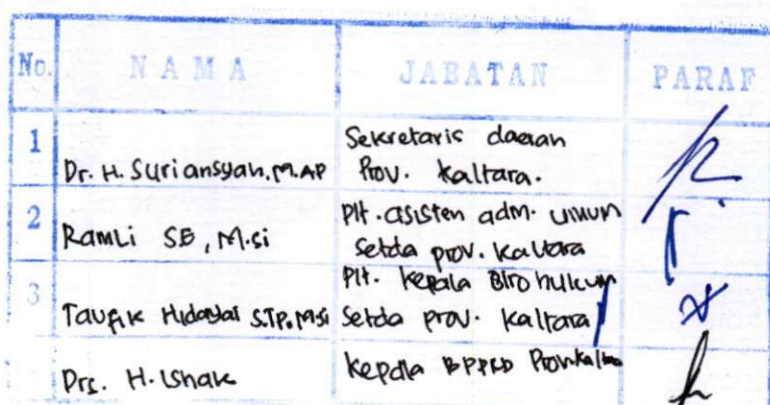 No. NAMA JABATAN PARAF
1 Dr. H. Suriansyah, M.AP Sekretaris daerah
Prov. Kaltara.
2 Ramli SE, M.si Plt. asisten adm. umum
Setda prov. Kaltara
3 Taufik Hidayat S.TP, M.si Plt. Kepala Biro hukum
Setda prov. Kaltara
Drs. H. Ishak Kepala BPPRD Prov. Kaltara